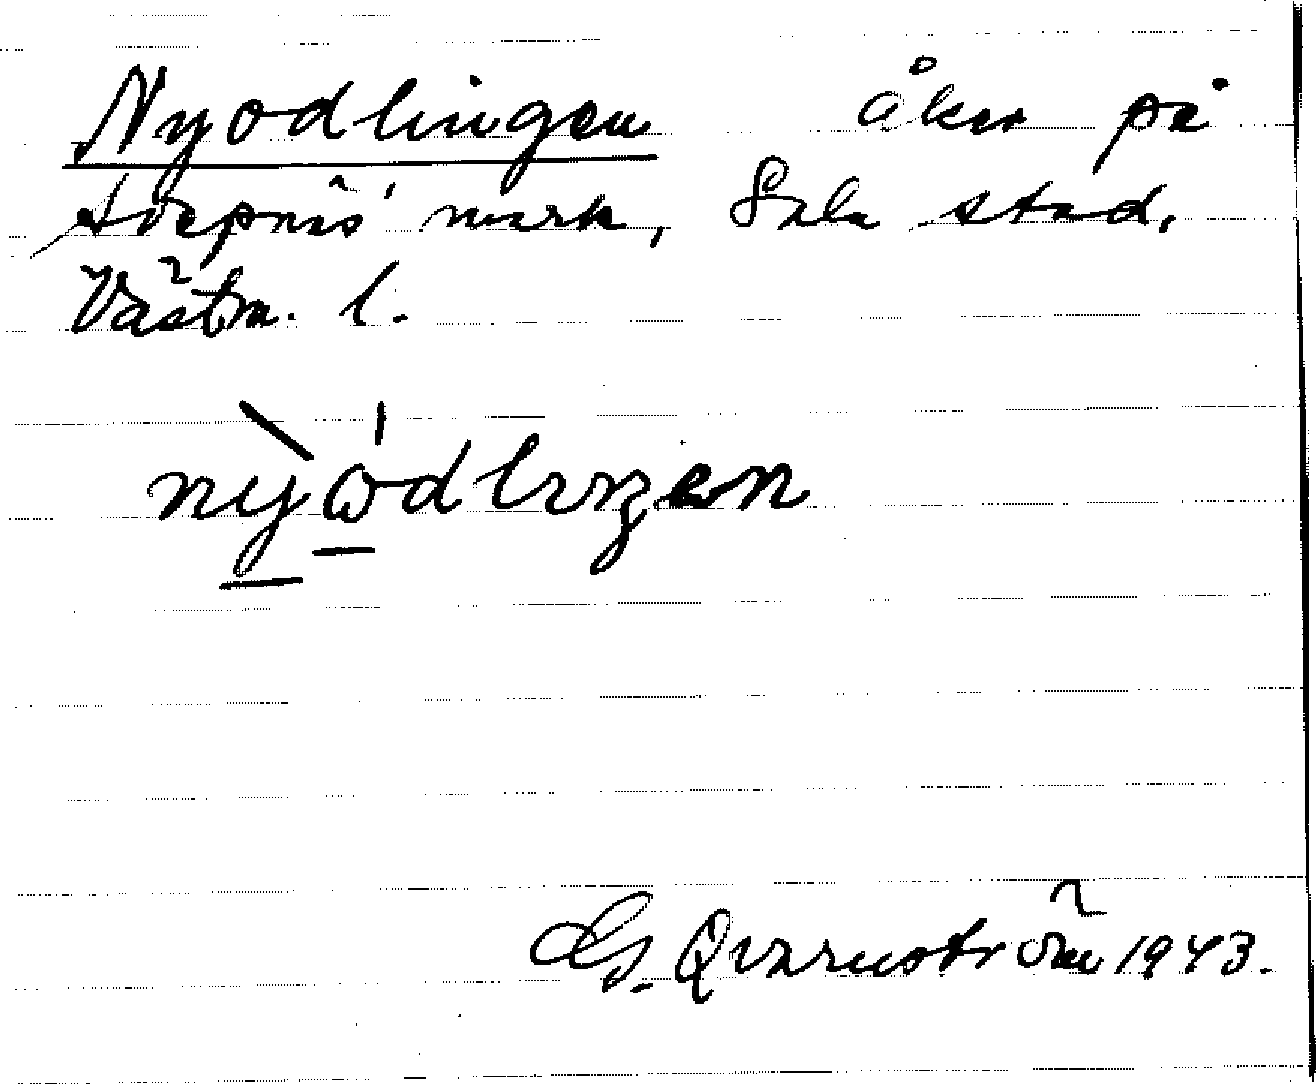 Nyodlingen åker på
mark, Sala stad,
Västm. l.
G. Qvarnström 1943.